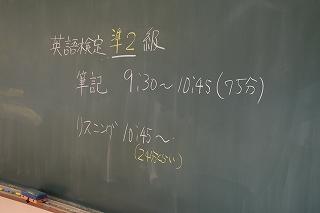 英語検定 準2級
筆記 9:30~10:45(75分)
リスニング 10:45~
(24分くらい)